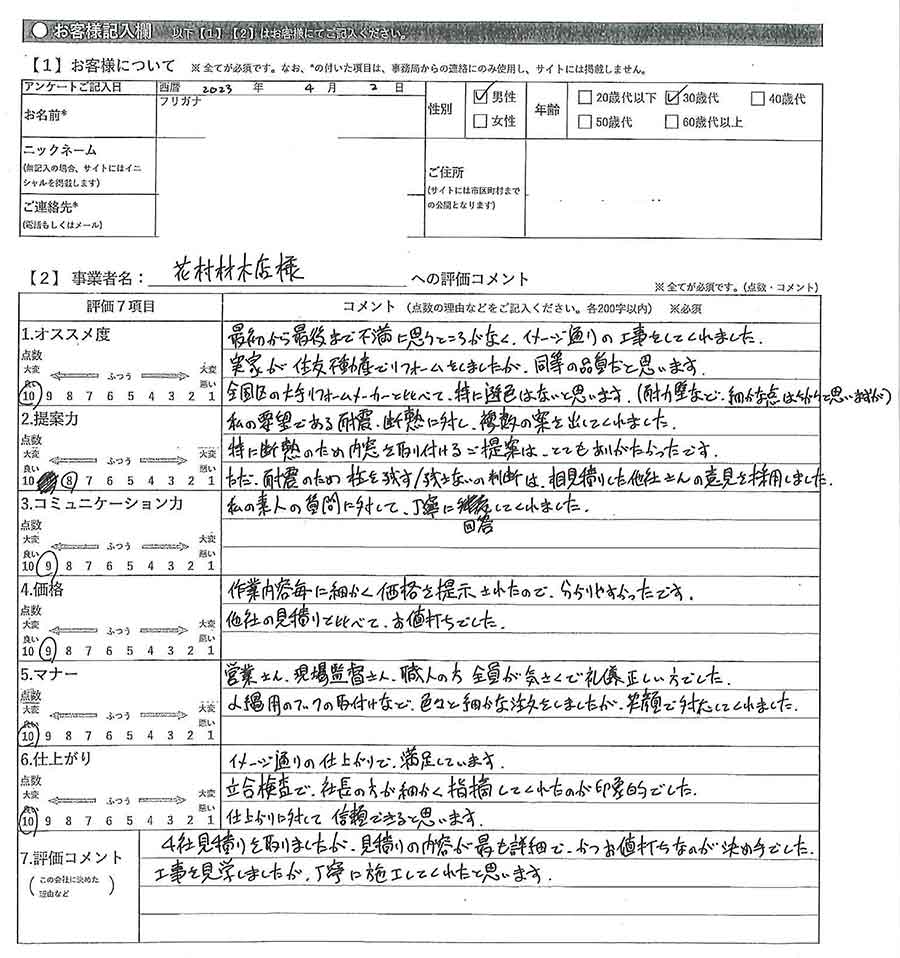 ● お客様記入欄 以下【1】【2】はお客様にてご記入ください。
【1】お客様について ※全てが必須です。なお、*の付いた項目は、事務局からの連絡にのみ使用し、サイトには掲載しません。
アンケートご記入日 西暦 2023 年 4 月 2 日
お名前* フリガナ
性別 ☑男性 □女性
年齢 □20歳代以下 ☑30歳代 □40歳代
□50歳代 □60歳代以上
ニックネーム
(無記入の場合、サイトにはイニ
シャルを掲載します)
ご連絡先*
(電話もしくはメール)
ご住所
(サイトには市区町村まで
の公開となります)
【2】事業者名: 花村材木店様 への評価コメント
※全てが必須です。(点数・コメント)
評価7項目 コメント (点数の理由などをご記入ください。各200字以内) ※必須
1.オススメ度
点数
大変 ふつう 大変
良い 悪い
10 9 8 7 6 5 4 3 2 1
最初から最後まで不満に思うところがなく、イメージ通りの工事をしてくれました。
実家が住友不動産でリフォームをしましたが、同等の品質だと思います。
全国区の大手リフォームメーカーと比べて、特に遜色はないと思います。(耐力壁など、細かな点は分かりと思いますが)
2.提案力
点数
大変 ふつう 大変
良い 悪い
10 8 7 6 5 4 3 2 1
私の要望である耐震、断熱に対し、複数の案を出してくれました。
特に断熱のため内窓を取り付けるご提案は、とてもありがたかったです。
ただ、耐震のため柱を残す/残さないの判断は、相見積りした他社さんの意見を採用しました。
3.コミュニケーション力
点数
大変 ふつう 大変
良い 悪い
10 9 8 7 6 5 4 3 2 1
私の素人の質問に対して、丁寧に回答してくれました。
4.価格
点数
大変 ふつう 大変
良い 悪い
10 9 8 7 6 5 4 3 2 1
作業内容毎に細かく価格を提示されたので、分かりやすかったです。
他社の見積りと比べて、お値打ちでした。
5.マナー
点数
大変 ふつう 大変
良い 悪い
10 9 8 7 6 5 4 3 2 1
営業さん、現場監督さん、職人の方全員が気さくで礼儀正しい方でした。
用のフックの取付けなど、色々と細かな注文をしましたが、笑顔で対応してくれました。
6.仕上がり
点数
大変 ふつう 大変
良い 悪い
10 9 8 7 6 5 4 3 2 1
イメージ通りの仕上がりで、満足しています。
立合検査で、社長の方が細かく指摘してくれたのが印象的でした。
仕上がりに対して信頼できると思います。
7.評価コメント
(この会社に決めた
理由など)
4社見積りを取りましたが、見積りの内容が最も詳細で、かつお値打ちなのが決め手でした。
工事を見学しましたが、丁寧に施工してくれたと思います。